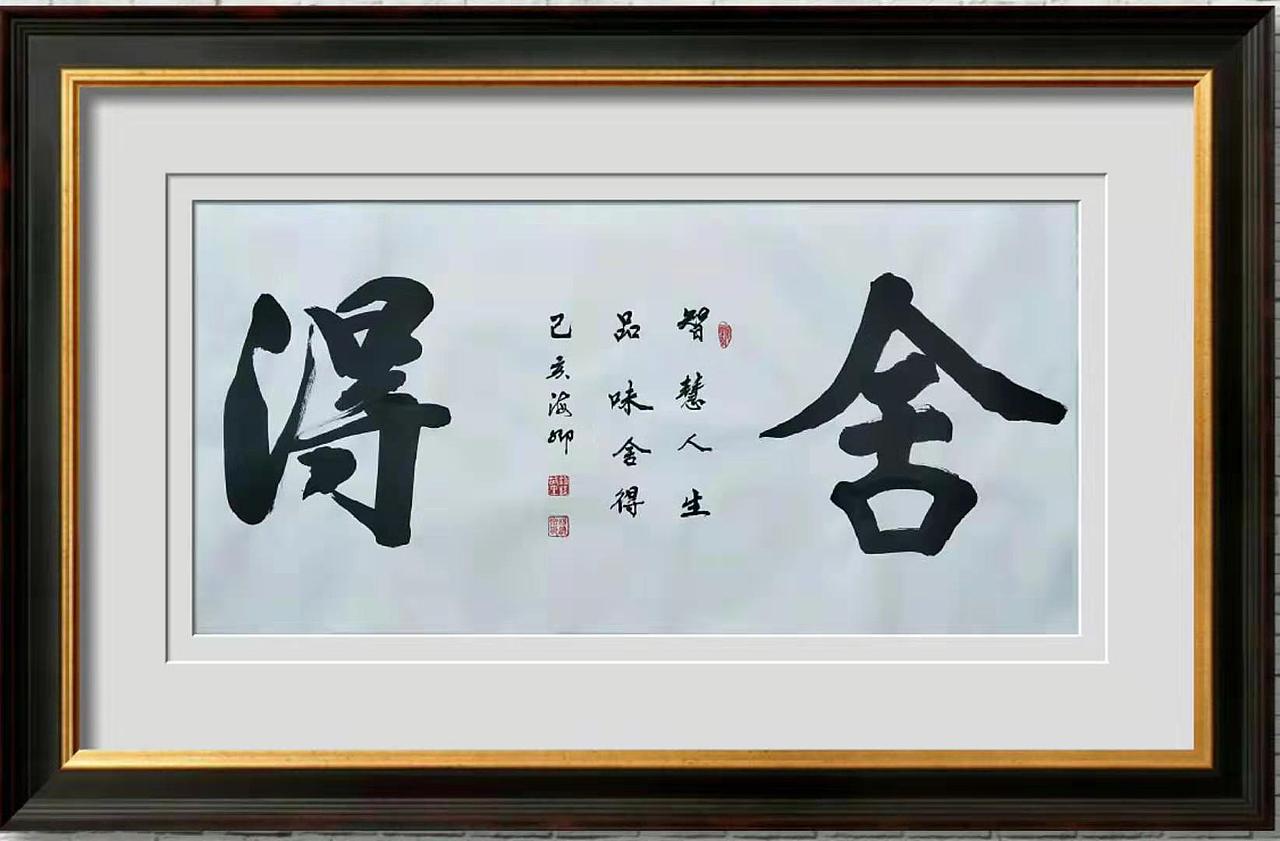 舍
智慧人生
品味舍得
己亥海卿
得